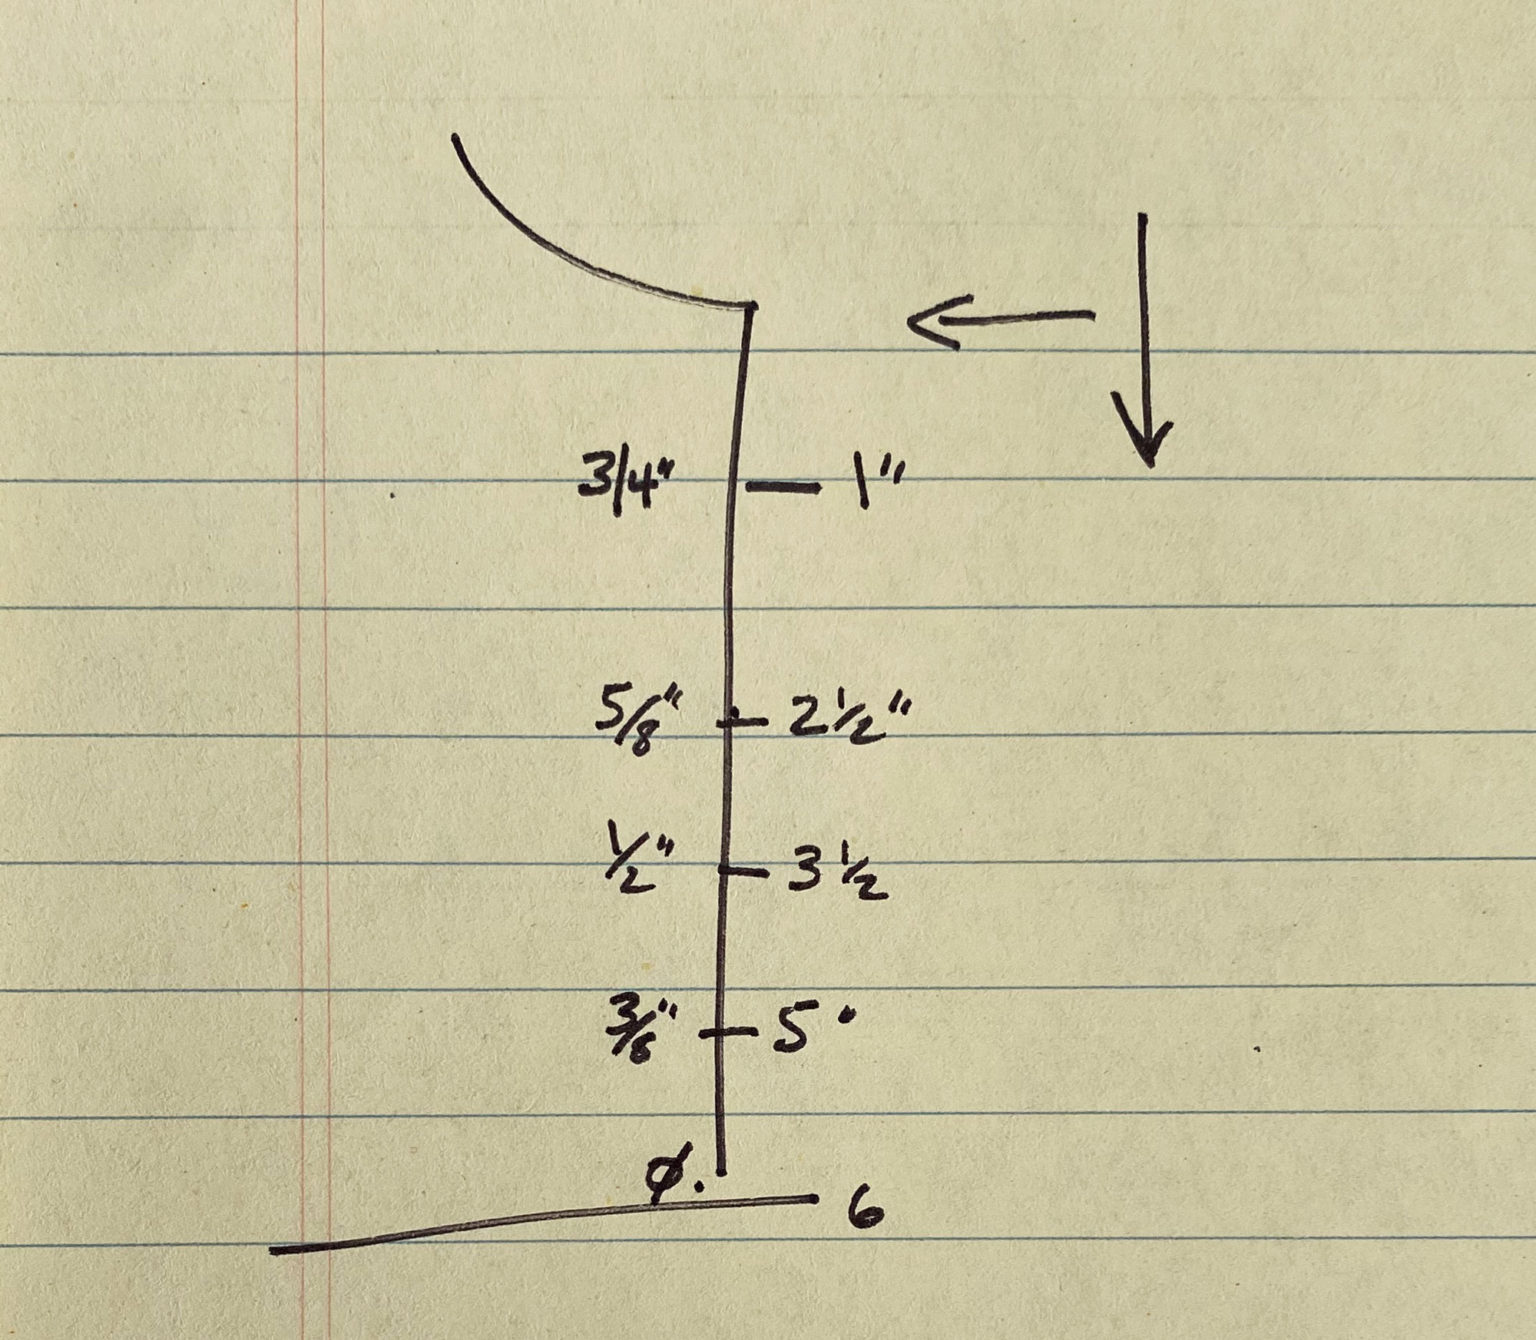 3/4" 1"
5/8" 2 1/2"
1/2" 3 1/2
3/8" 5"
Ø. 6